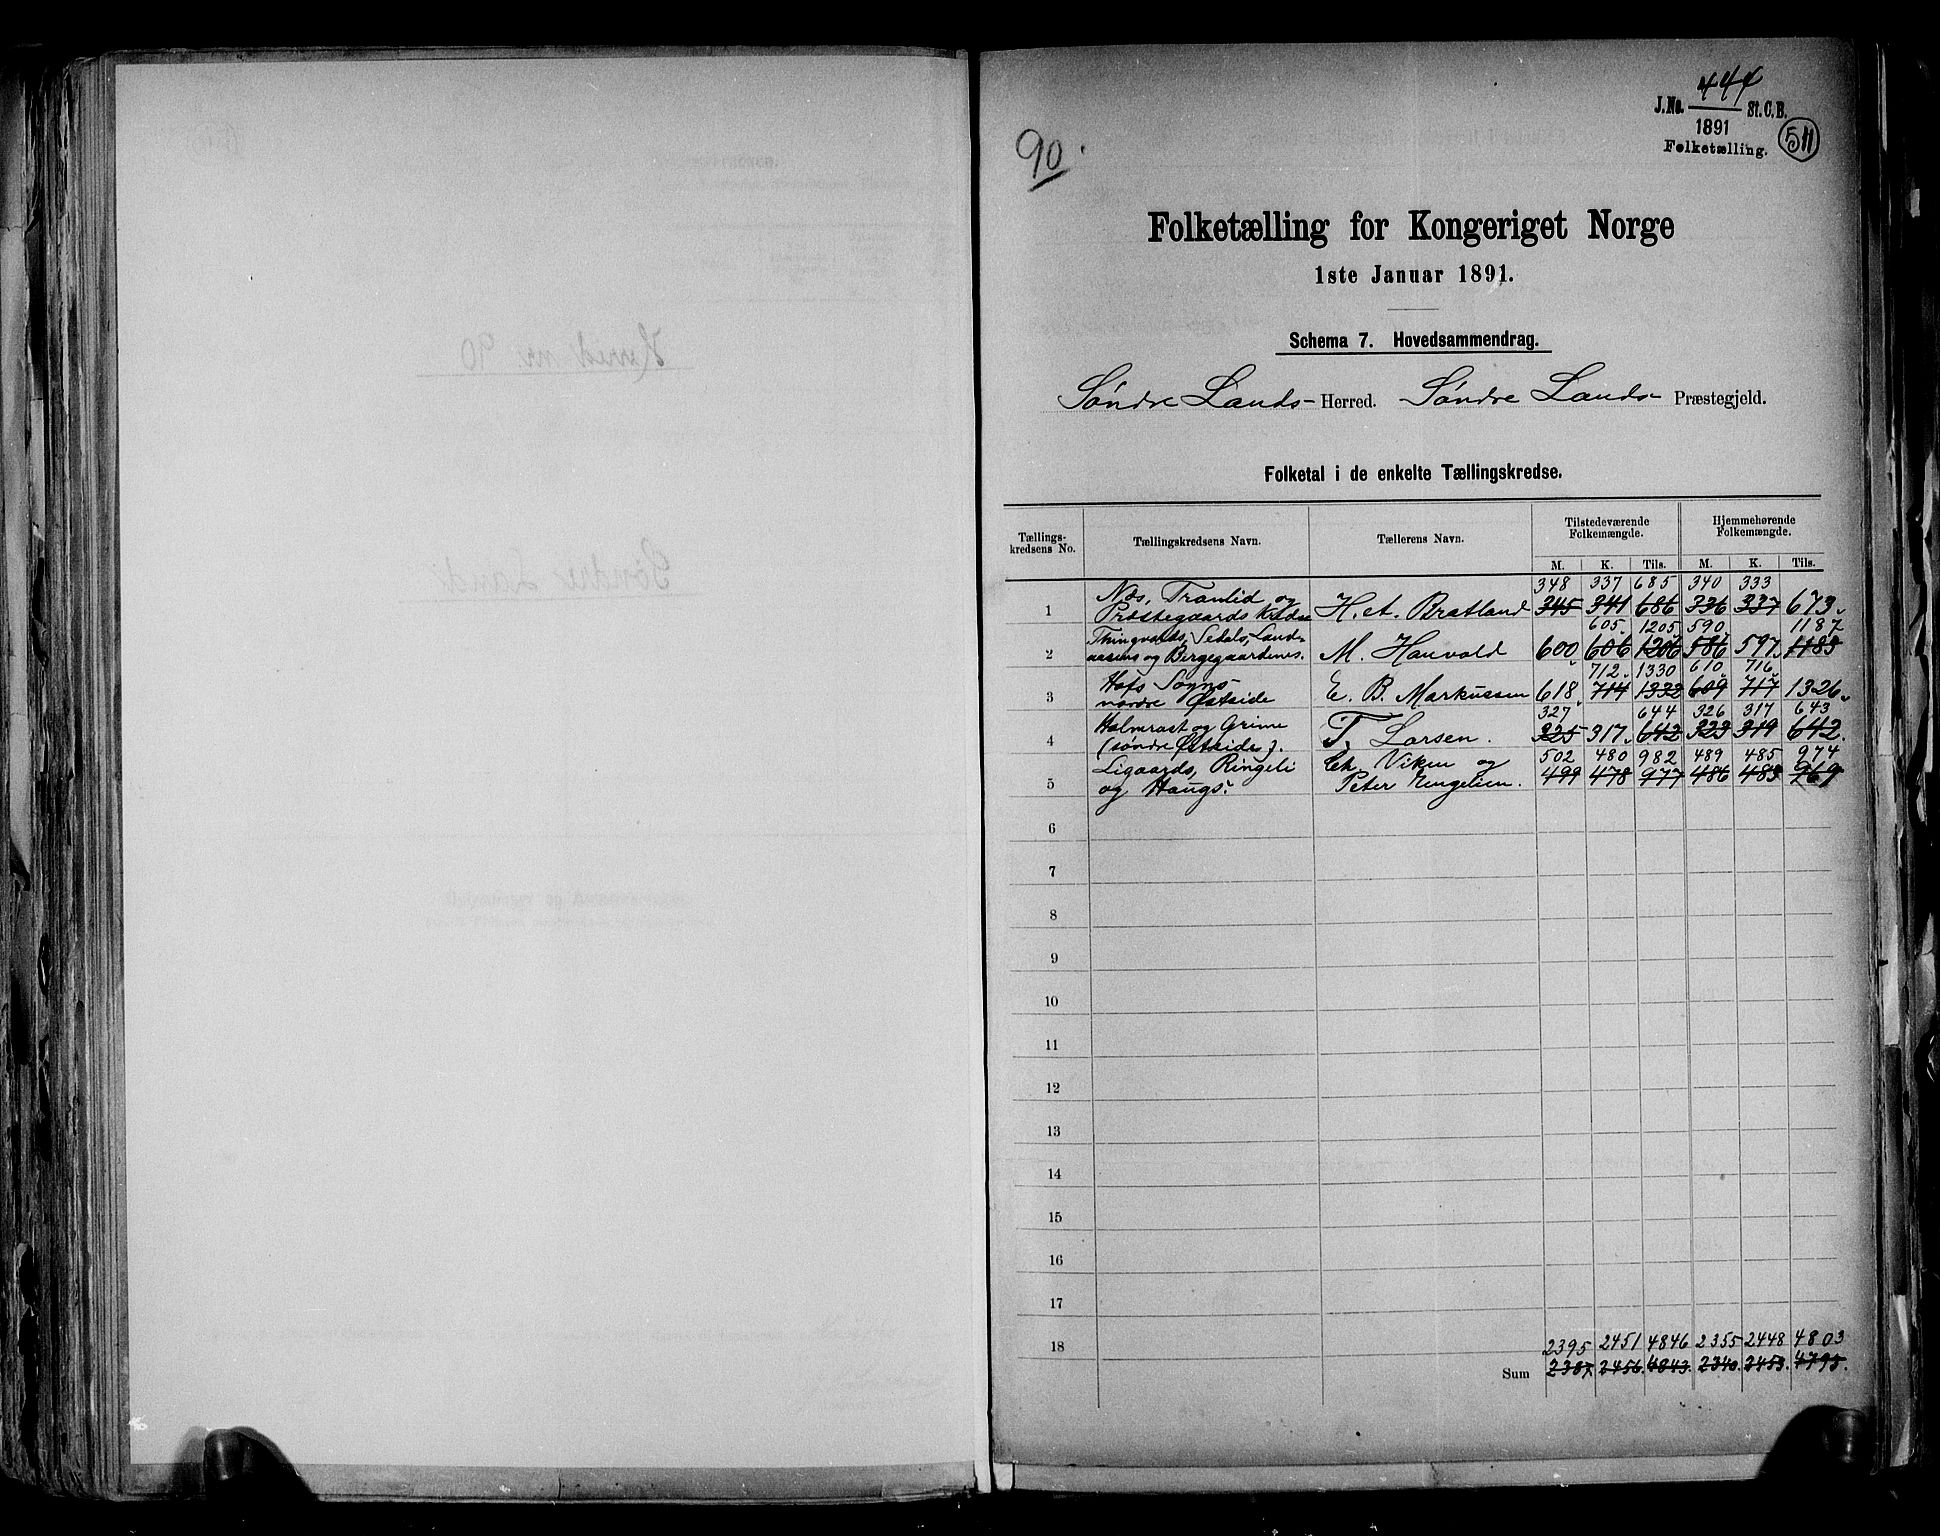 444
J.No. St.C.B.
1891
Folketælling.
511
90
Folketælling for Kongeriget Norge
1ste Januar 1891.
Schema 7. Hovedsammendrag.
Søndre Lands- Herred. Søndre Lands- Præstegjeld.
Folketal i de enkelte Tællingskredse.
Tællings-kredsens No. Tællingskredsens Navn. Tællerens Navn. Tilstedeværende Folkemængde. Hjemmehørende Folkemængde.
M. K. Tils. M. K. Tils.
348 337 685 340 333
1 Næs, Tranlid og Præstegaards Kredse H. A. Bratland 345 341 686 336 337 673
605 1205 590 1187
2 Thingvolds, Sedals, Land=aasens og Bergegaardenes. M. Hauvold 600 606 1206 586 597 1183
712 1330 610 716
3 Hofs Sogns-nordre Østside E. B. Markussen 618 714 1332 609 717 1326
327 644 326 317 643
4 Halmrast og Grime (søndre Østside). T. Larsen. 325 317 642 323 319 642
502 480 982 489 485 974
5 Ligaards, Ringeli og Haugs. Ch. Viken og Peter Engelien. 499 478 977 486 483 969
6
7
8
9
10
11
12
13
14
15
16
17
18
2395 2451 4846 2355 2448 4803
Sum 2387 2456 4843 2340 2453 4793